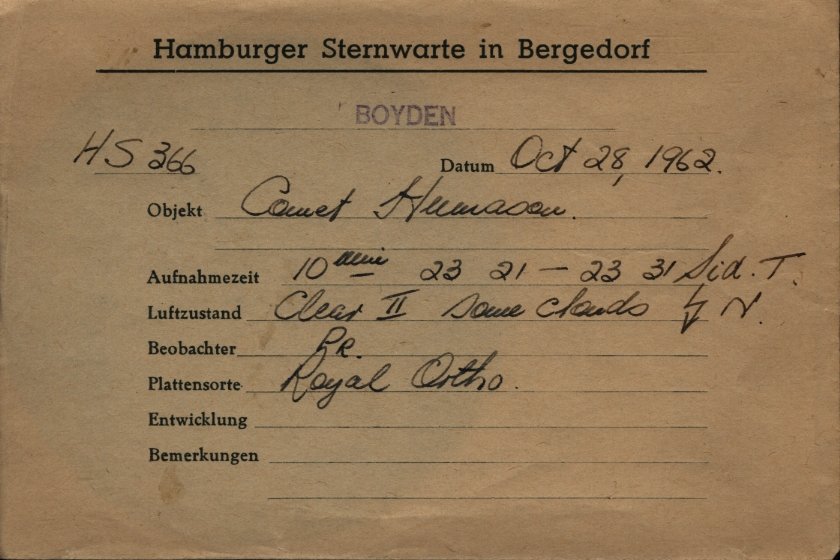 Hamburger Sternwarte in Bergedorf
BOYDEN
HS 366 Datum Oct 28, 1962.
Objekt Comet Humason.
Aufnahmezeit 10 min 23 21 — 23 31 Sid. T.
Luftzustand Clear II some clouds N.
Beobachter
Plattensorte Royal Ortho.
Entwicklung
Bemerkungen